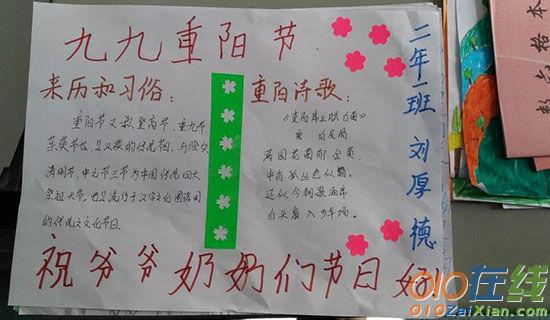 九九重阳节
来历和习俗：
重阳节又叫登高节、重九节、
茱萸节,是汉族的传统节日,与除夕、
清明节、中元节三节为中国传统四大
祭祖大节,也是流行于汉字文化圈诸国
的传统文化节日。
重阳诗歌：
唐
满园花菊郁金黄，
中有孤丛色似霜。
还似今朝歌酒席，
白头翁入少年场。
二年一班 刘厚德
祝爷爷奶奶们节日
数学格本
010在线
010ZaiXian.com